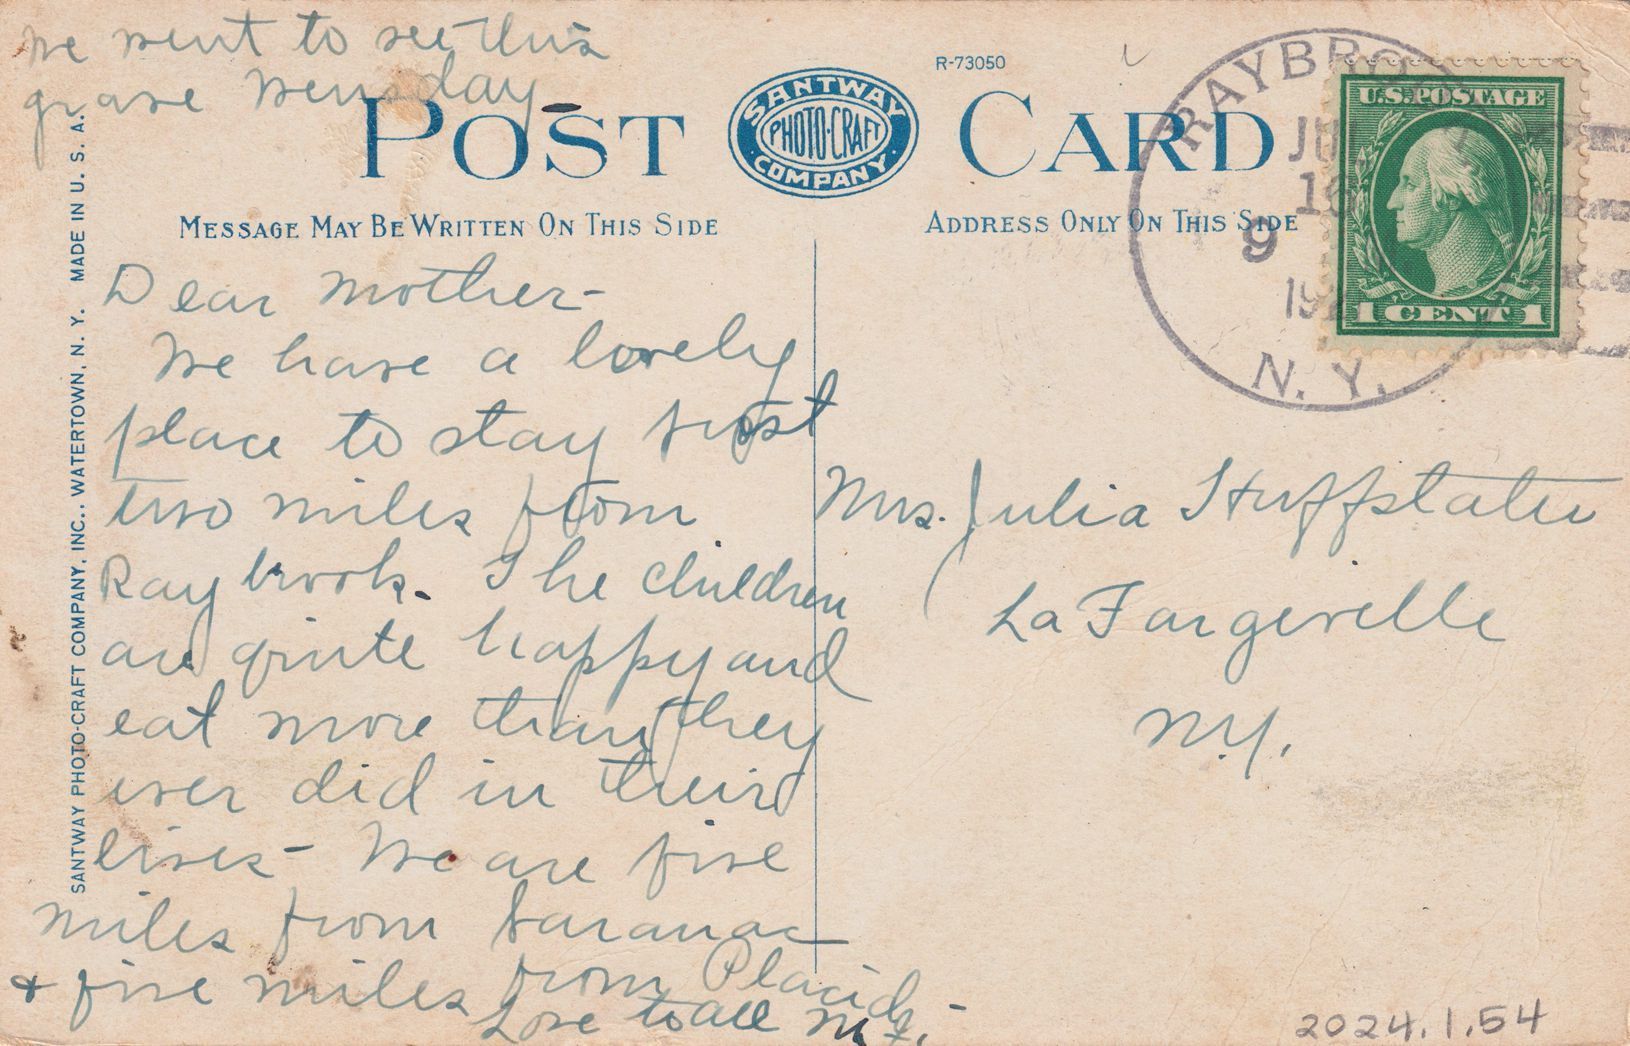 We went to see this
grave Wensday
R-73050
POST CARD
SANTWAY
PHOTO-CRAFT
COMPANY
MESSAGE MAY BE WRITTEN ON THIS SIDE
ADDRESS ONLY ON THIS SIDE
RAYBROOK
16
9
N. Y.
U.S. POSTAGE
1 CENT 1
SANTWAY PHOTO-CRAFT COMPANY, INC., WATERTOWN, N. Y. MADE IN U. S. A.
Dear Mother-
We have a lovely
place to stay just
two miles from
Raybrook. The children
are quite happy and
eat more than they
ever did in their
lives- We are five
miles from Saranac
& five miles from Placid-
Love to all
Mrs. Julia Huffstater
La Fargeville
N.Y.
2024.1.54